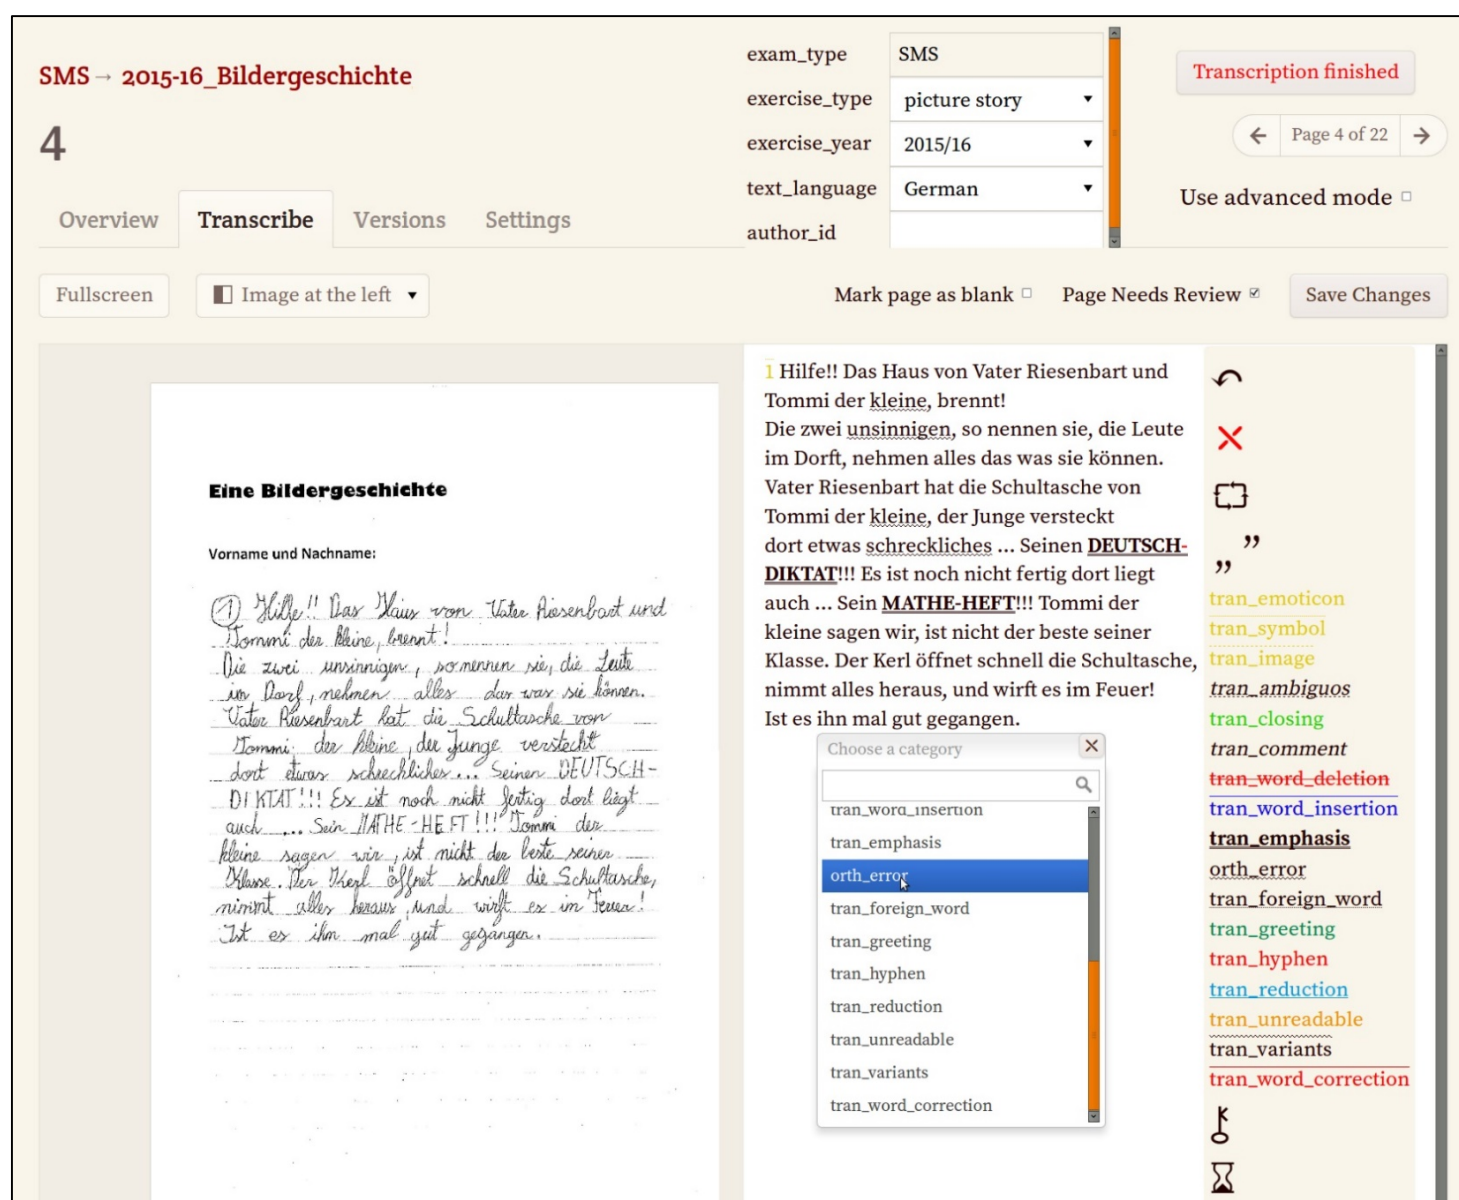 SMS → 2015-16_Bildergeschichte
4
exam_type SMS
exercise_type picture story
exercise_year 2015/16
text_language German
author_id
Transcription finished
← Page 4 of 22 →
Use advanced mode
Overview Transcribe Versions Settings
Fullscreen Image at the left Mark page as blank Page Needs Review Save Changes
Eine Bildergeschichte
Vorname und Nachname:
① Hilfe!! Das Haus von Vater Riesenbart und
Tommi der kleine, brennt!
Die zwei unsinnigen, so nennen sie, die Leute
im Dorf, nehmen alles das was sie können.
Vater Riesenbart hat die Schultasche von
Tommi der kleine, der Junge versteckt
dort etwas schreckliches... Seinen DEUTSCH-
DIKTAT!!! Es ist noch nicht fertig dort liegt
auch ... Sein MATHE-HEFT!!! Tommi der
kleine sagen wir, ist nicht der beste seiner
Klasse. Der Kerl öffnet schnell die Schultasche,
nimmt alles heraus, und wirft es im Feuer!
Ist es ihm mal gut gegangen.
1 Hilfe!! Das Haus von Vater Riesenbart und
Tommi der kleine, brennt!
Die zwei unsinnigen, so nennen sie, die Leute
im Dorft, nehmen alles das was sie können.
Vater Riesenbart hat die Schultasche von
Tommi der kleine, der Junge versteckt
dort etwas schreckliches ... Seinen DEUTSCH-
DIKTAT!!! Es ist noch nicht fertig dort liegt
auch ... Sein MATHE-HEFT!!! Tommi der
kleine sagen wir, ist nicht der beste seiner
Klasse. Der Kerl öffnet schnell die Schultasche,
nimmt alles heraus, und wirft es im Feuer!
Ist es ihn mal gut gegangen.
Choose a category
tran_word_insertion
tran_emphasis
orth_error
tran_foreign_word
tran_greeting
tran_hyphen
tran_reduction
tran_unreadable
tran_variants
tran_word_correction
„ ”
tran_emoticon
tran_symbol
tran_image
tran_ambiguos
tran_closing
tran_comment
tran_word_deletion
tran_word_insertion
tran_emphasis
orth_error
tran_foreign_word
tran_greeting
tran_hyphen
tran_reduction
tran_unreadable
tran_variants
tran_word_correction